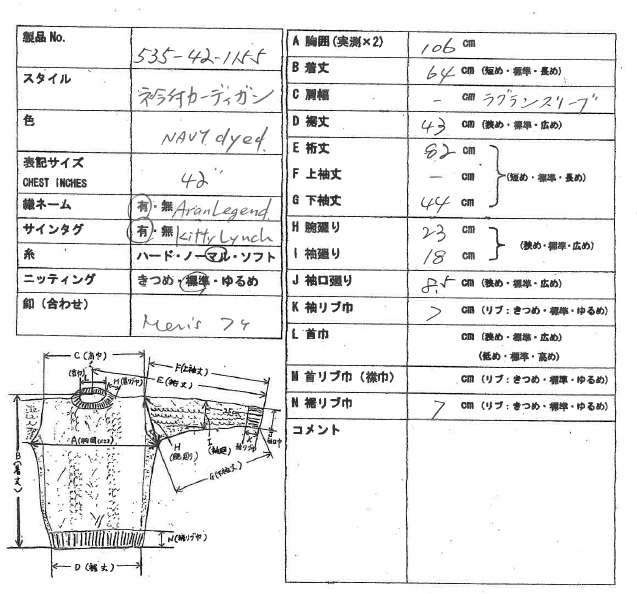 製品 No.
535-42-1155
スタイル
衿付カーディガン
色
NAVY dyed.
表記サイズ
CHEST INCHES
42"
織ネーム
有・無 Aran Legend
サインタグ
有・無 Kitty Lynch
糸
ハード・ノーマル・ソフト
ニッティング
きつめ・標準・ゆるめ
釦（合わせ）
Men's 7ケ
A 胸囲(実測×2)
106 cm
B 着丈
64 cm (短め・標準・長め)
C 肩幅
- cm ラグランスリーブ
D 裾丈
43 cm (狭め・標準・広め)
E 裄丈
82 cm
F 上袖丈
- cm (短め・標準・長め)
G 下袖丈
44 cm
H 腕廻り
23 cm
(狭め・標準・広め)
I 袖廻り
18 cm
J 袖口廻り
8.5 cm (狭め・標準・広め)
K 袖リブ巾
7 cm (リブ：きつめ・標準・ゆるめ)
L 首巾
cm (狭め・標準・広め)
(低め・標準・高め)
M 首リブ巾（襟巾）
cm (リブ：きつめ・標準・ゆるめ)
N 裾リブ巾
7 cm (リブ：きつめ・標準・ゆるめ)
コメント
C (肩巾)
F (上袖丈)
E (裄丈)
M (首リブ巾)
A (胸囲)
B (着丈)
H (腕廻)
I (袖廻)
K 袖リブ巾
G (下袖丈)
N (裾リブ巾)
D (裾丈)